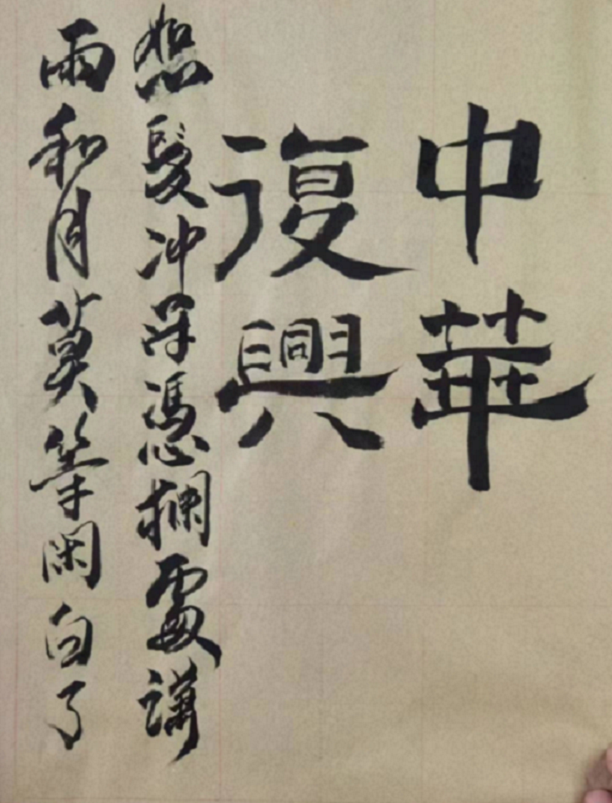 中華
復興
怒髮冲冠憑欄處瀟
雨和月莫等閑白了